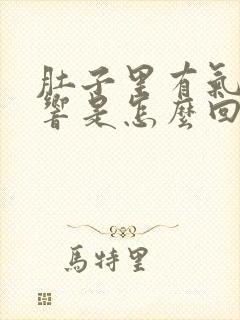 肚子里有氣
響是怎麼回
馬特里